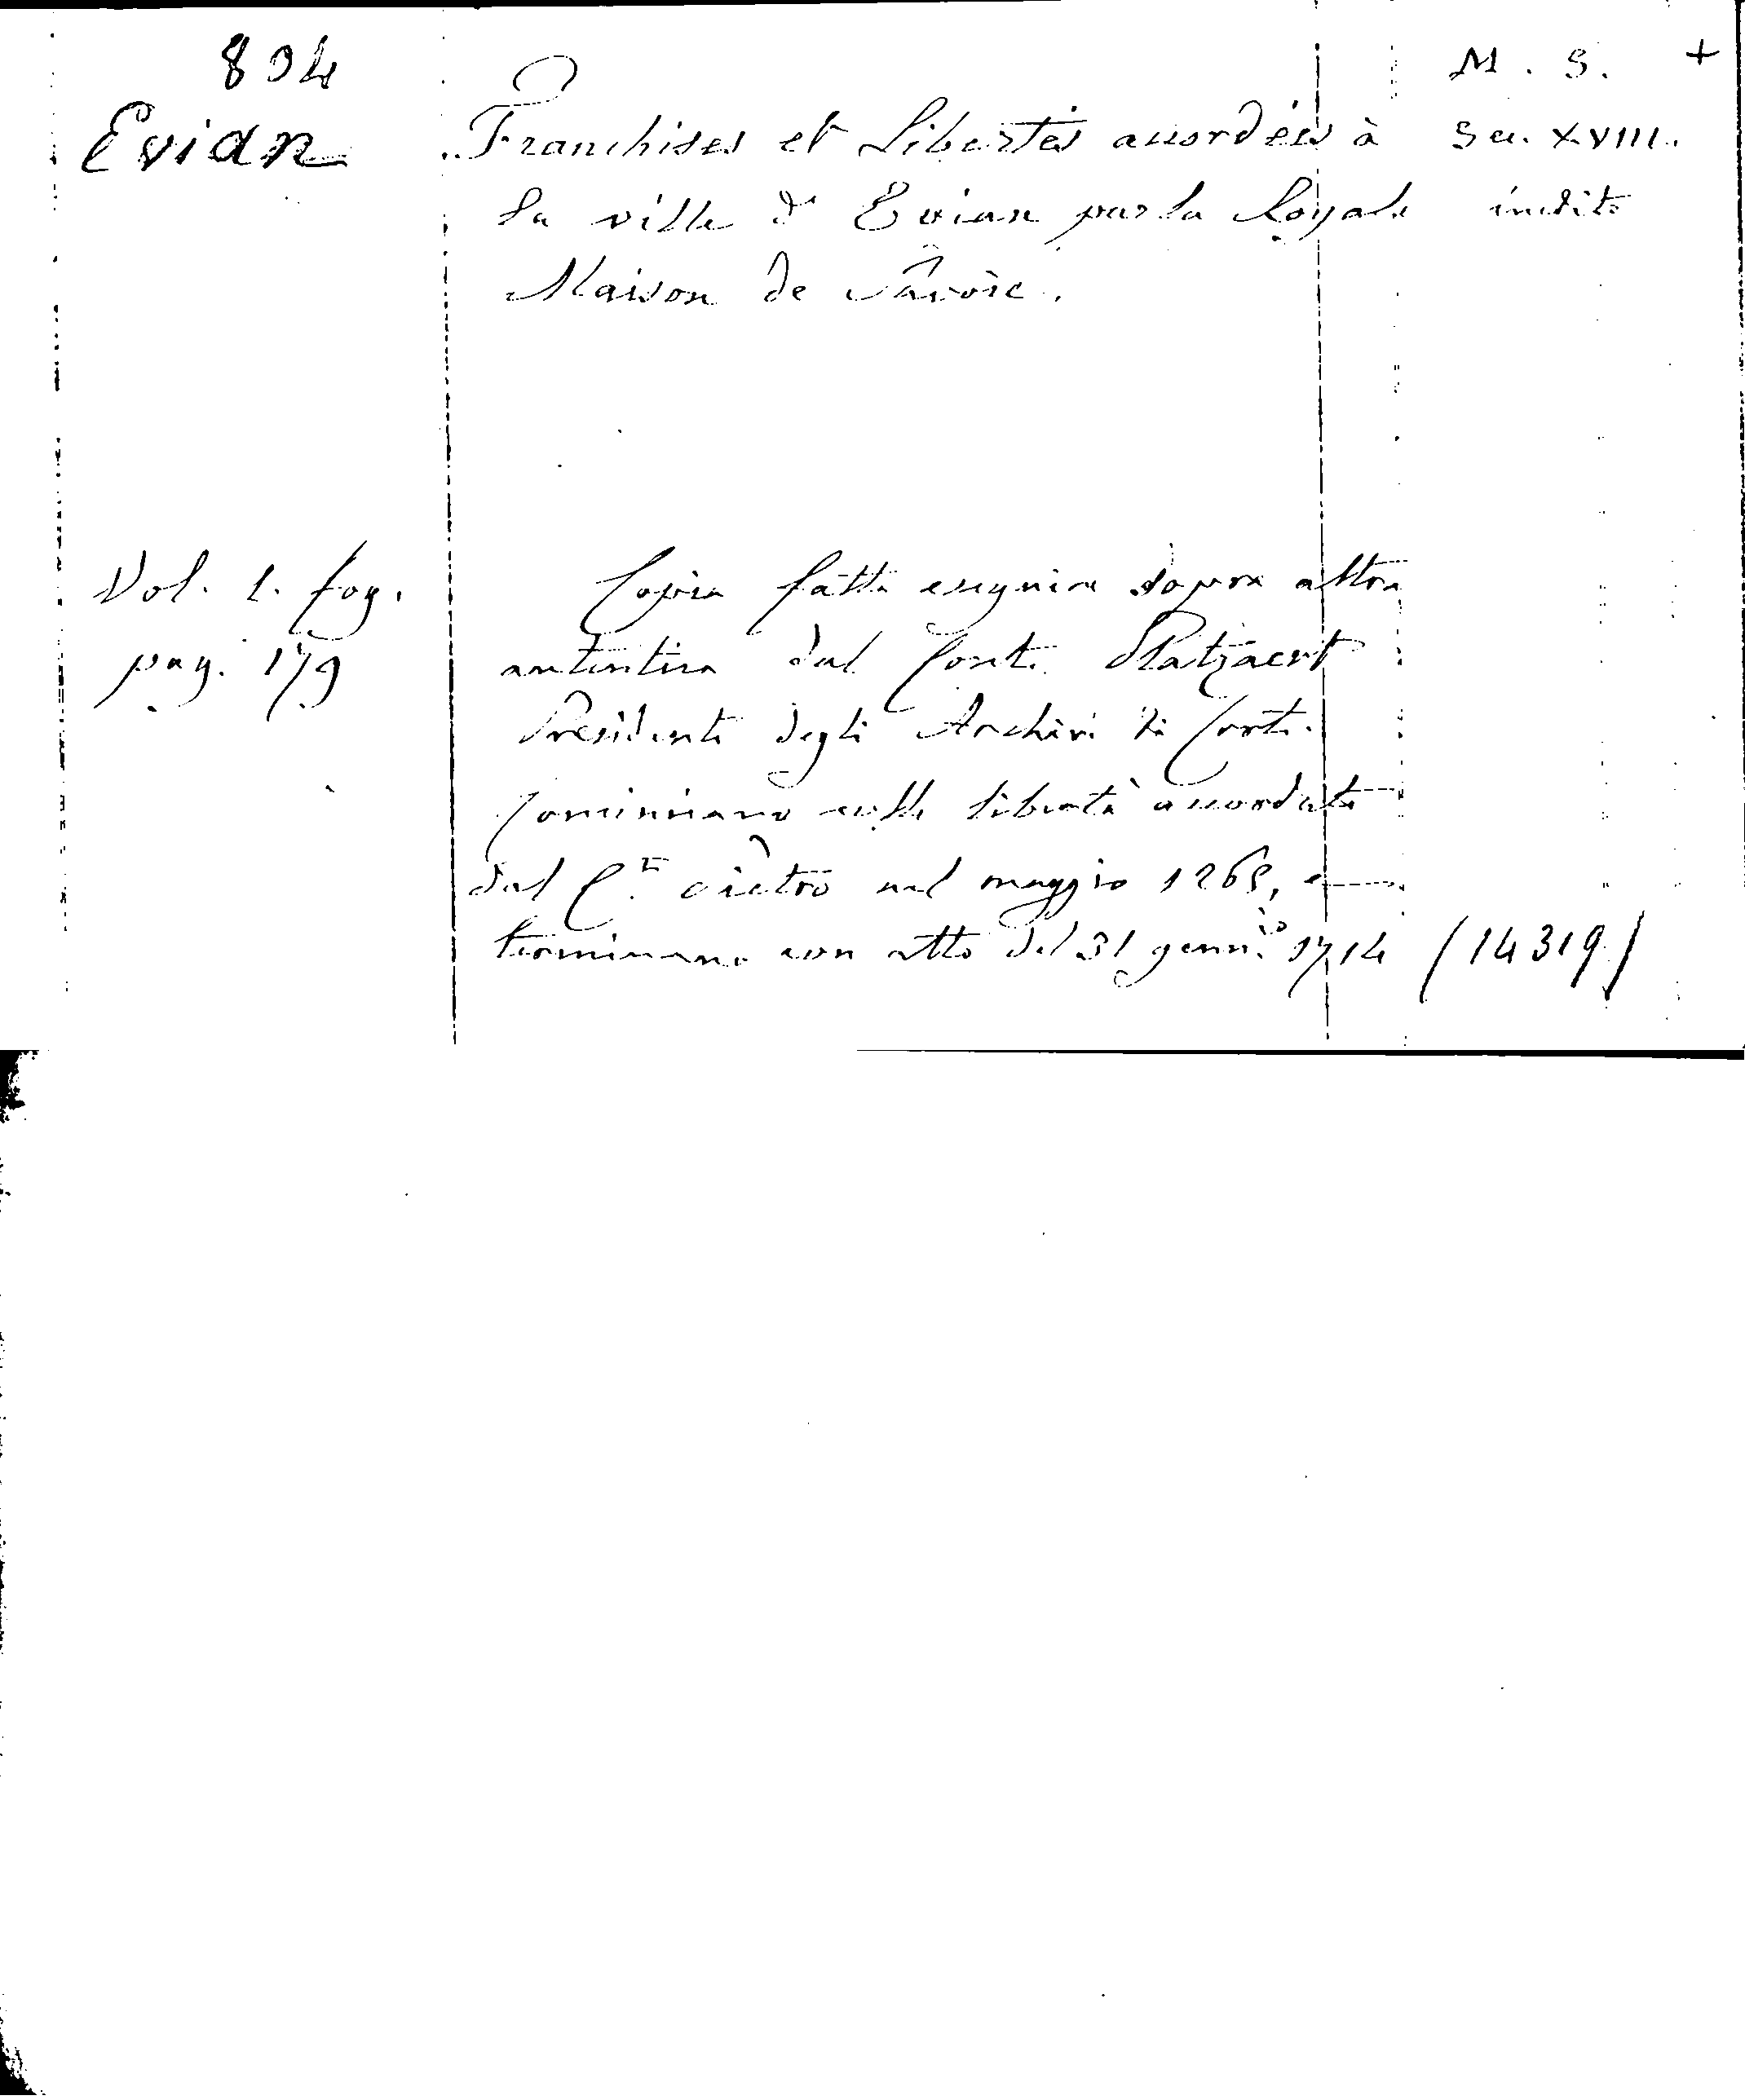 804
M. S. +
Evian
Franchises et Libertés accordées à
Sec. XVIII.
la ville d'Evian par la Royale
inedito
Maison de Savoie.
Vol. 1. fog.
pag. 179
Copia fatta eseguire sopra altra
autentica dal Conte
Presidente degli Archivi di Corte.
Cominciano colle libertà accordate
dal C.te Pietro nel maggio 1265, e
terminano con atto del 31 genn.io 1714
(14319)